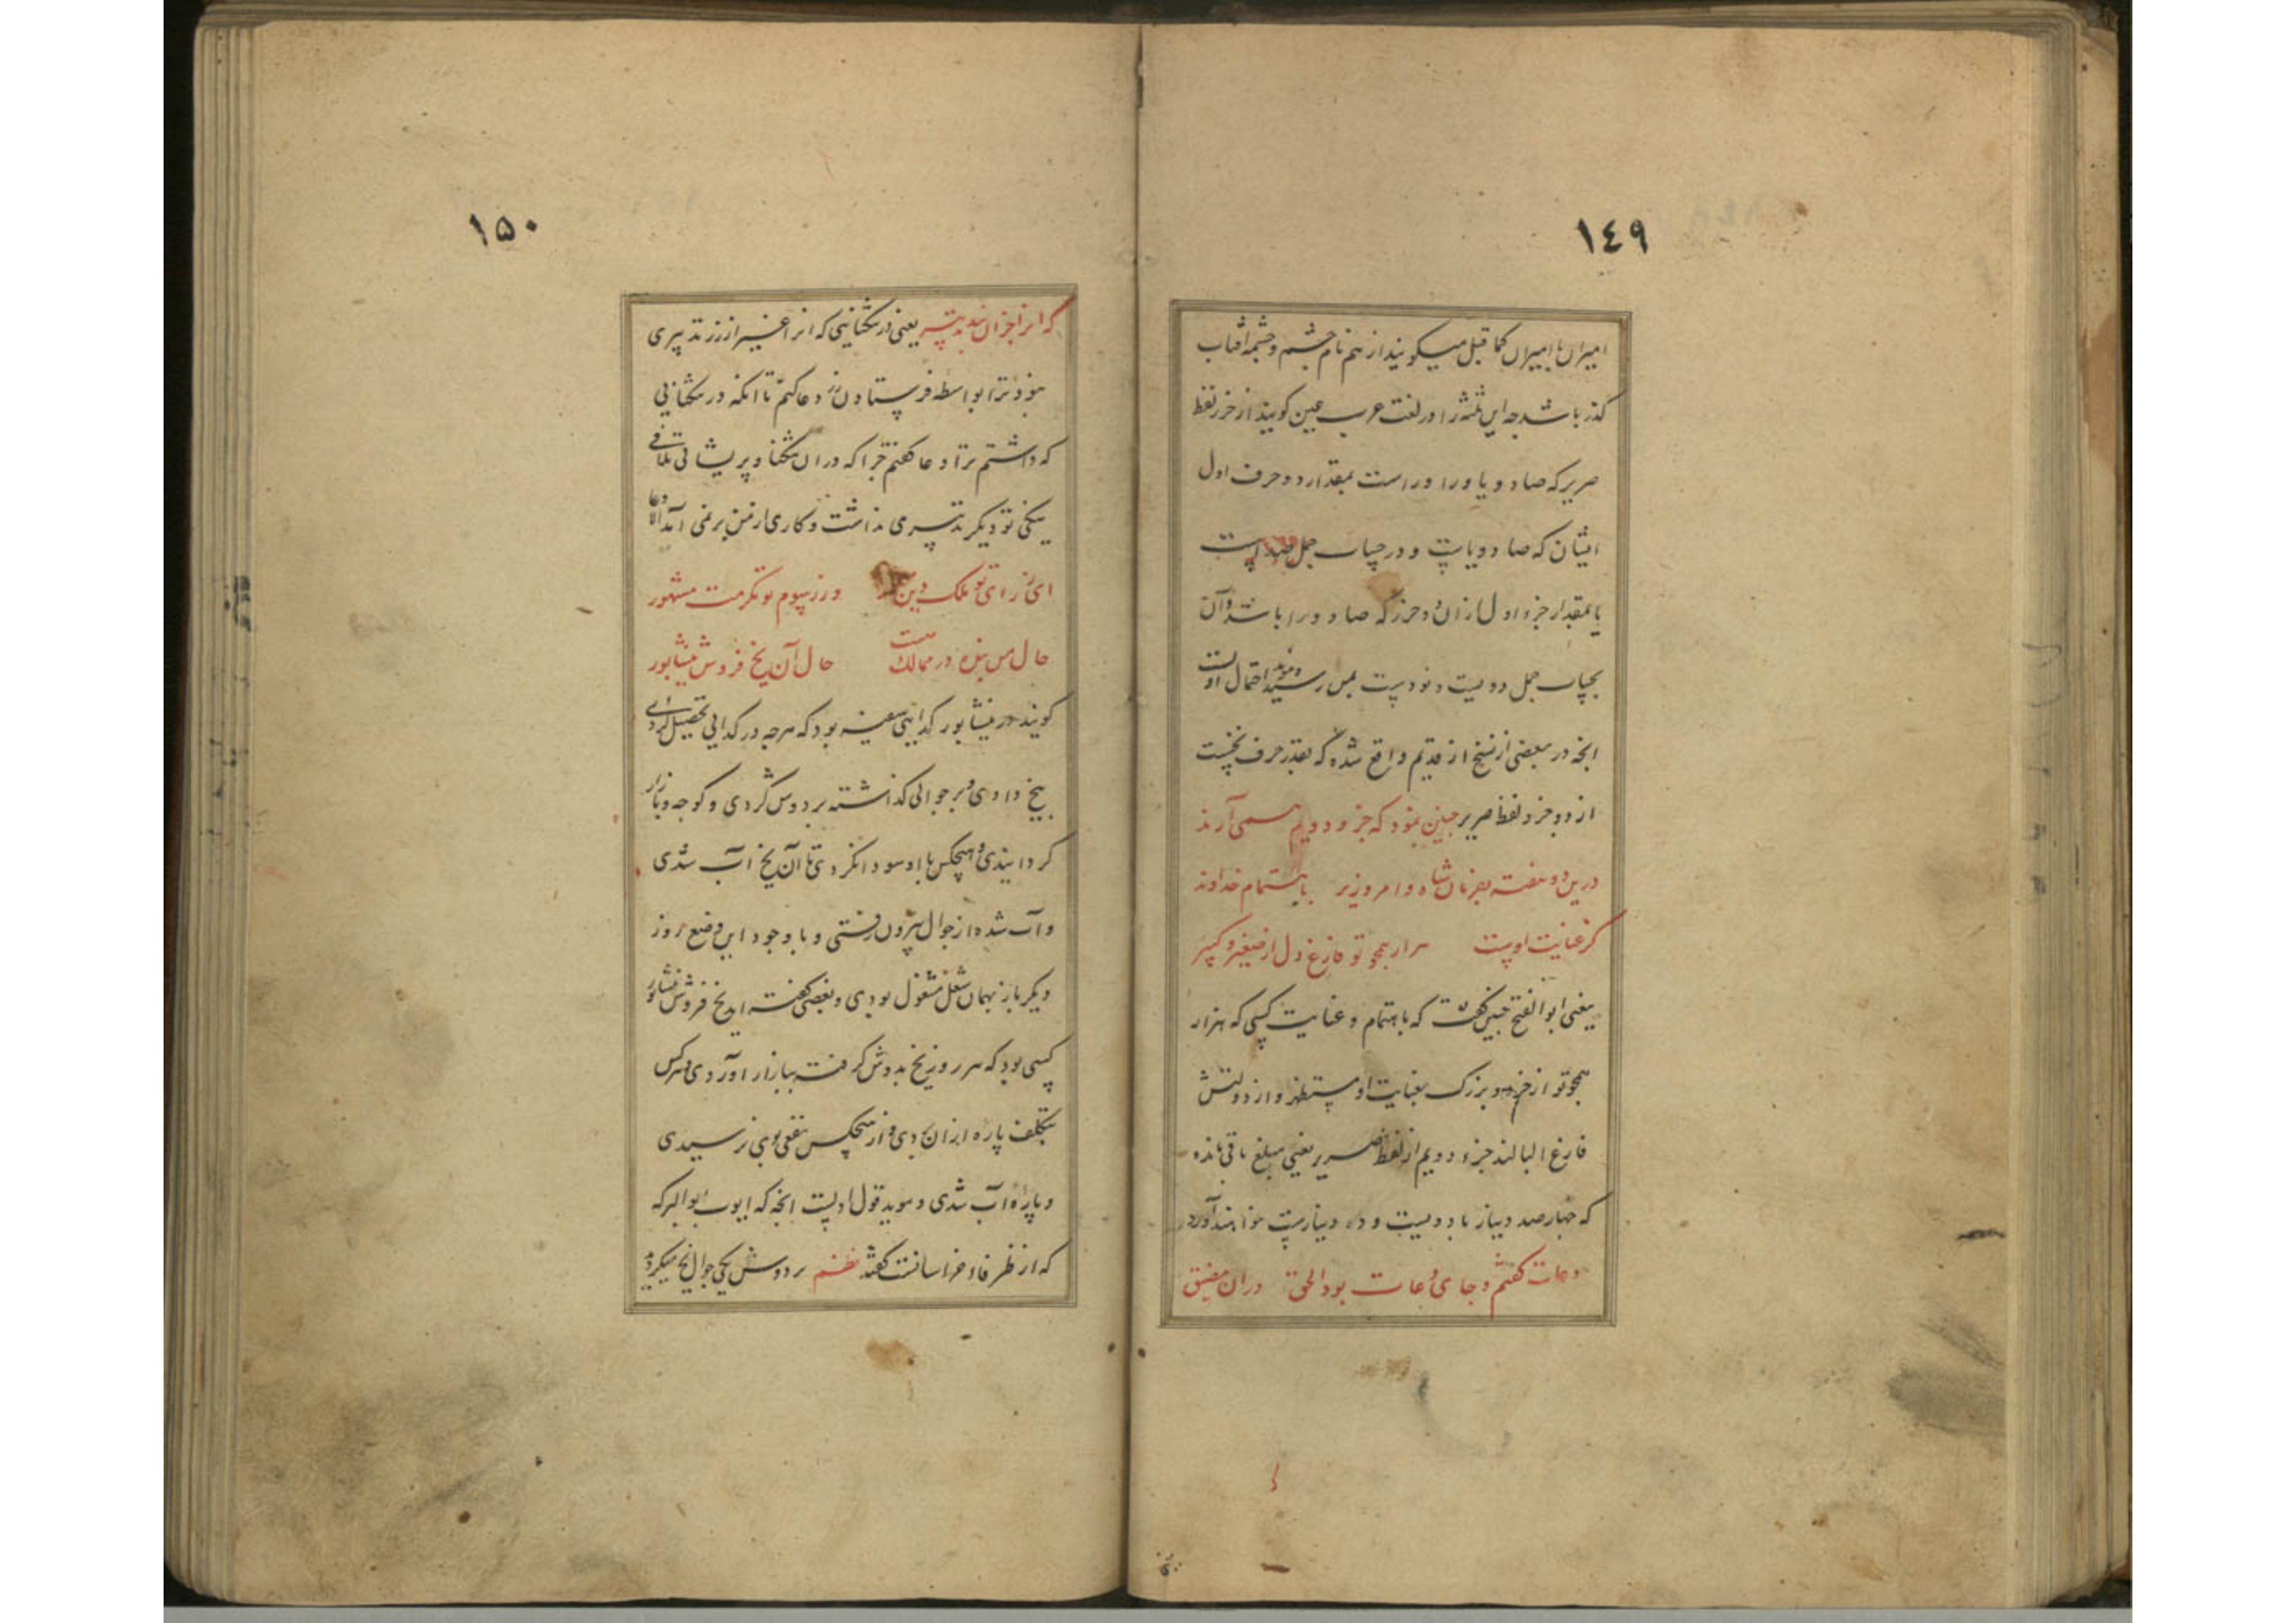 ١٤٩
امیران با امیران کما قیل میکویند از نام چشم وچشمه افتاب
کذر باشد چه این را در لغت عرب عین کویند از خرز لفظ
صریر که صاد و یا و را و راست بمقدار دو حرف اول
ایشان که صاد و یاست و در حساب جمل صد است
یا بمقدار جزو اول ازان دو جزء که صاد و را باشد وآن
بحساب جمل دویست و نود است بمن رسید احتمال اولست
انچه در بعضی از نسخ از قدیم واقع شده که بقدر حرف نخست
از دو جزو لفظ صریر چنین بود که جزو دویم سمی آرند
درین دو هفته بفرمان شاه و امر وزیر باهتمام خداوند
کز عنایت اوست هزار همچو تو فارغ دل از صغیر و کبیر
یعنی ابوالفتح چنین گفت که باهتمام و عنایت کسی که هزار
همچو تو از خرد و بزرک بعنایت او مستظهر و از دولتش
فارغ البالند جزء دویم از لفظ صریر یعنی مبلغ باقی مانده
که چهارصد دینار یا دویست و ده دینارست خواهند آورد
دعات کفتم و جای دعات بود الحق دران مضیق
١٥٠
که انرا جزان نبد تدبیر یعنی در تنکنایی که انرا غیر از زر تدبیری
نبود ترا بواسطه فرستادن زر دعا کنم تا انکه در تنکنایی
که داشتم ترا دعا کفتم چرا که دران تنکنا و پریشانی تلافی
نیکی تو دیکر تدبیری نداشت و کاری از من بر نمی آمد الا دعا
ای ز رای تو ملک دین معمور وز رسوم تو مکرمت مشهور
حال من بنده در ممالک هست حال آن یخ فروش نیشابور
کویند در نیشابور کدایی سفیه بود که هرچه در کدایی تحصیل کردی
بیخ دادی و در جوالی کذاشته بر دوش کردی و کوچه و بازار
کردانیدی و هیچکس با او سودا نکردی تا آن یخ آب شدی
و آب شده از جوال بیرون رفتی و با وجود این وضع روز
دیکر باز بهمان شغل مشغول بودی و بعضی کفته اند یخ فروش نیشابور
کسی بود که هر روز یخ بدوش کرفته ببازار اوردی و هرکس
بتکلف پاره ازان بردی و از هیچکس نفعی بوی نرسیدی
و پاره آب شدی و موید قول اولست انچه که ایوب ابوالبرکه
که از ظرفاء خراسانست کفته نظم بر دوش یکی جوال یخ میکردید